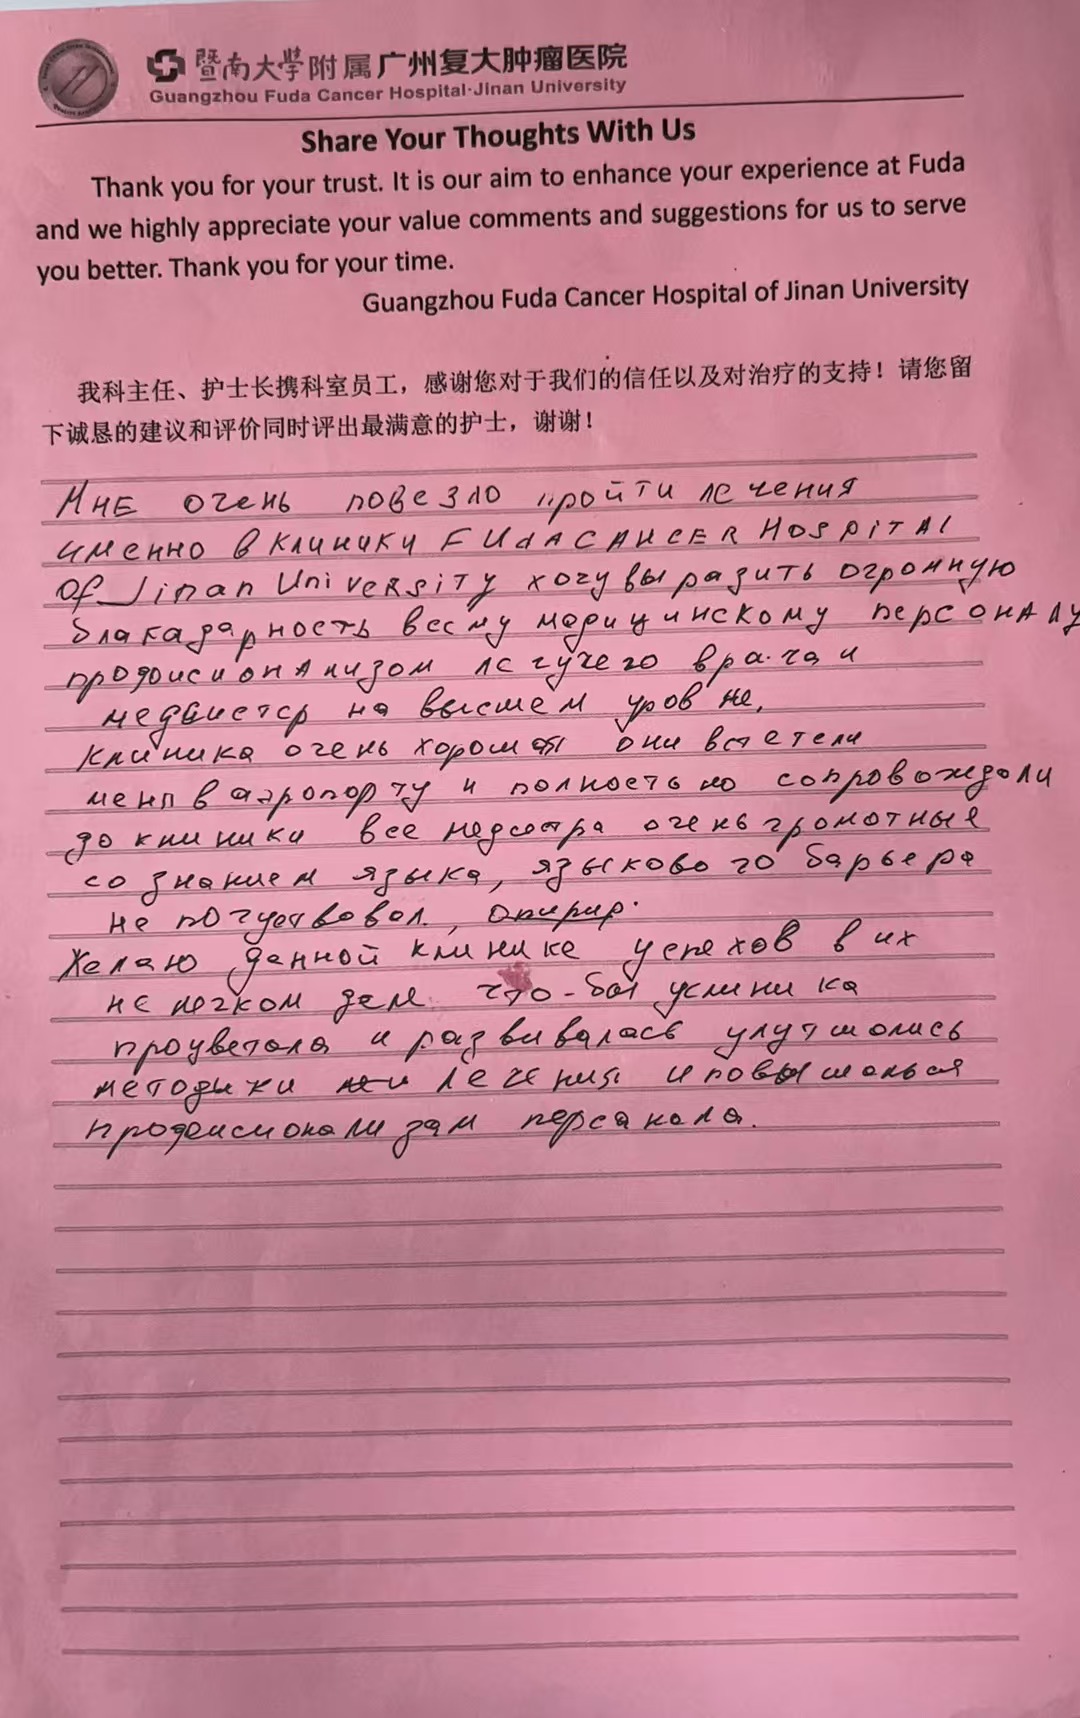 暨南大学附属广州复大肿瘤医院
Guangzhou Fuda Cancer Hospital·Jinan University
Share Your Thoughts With Us
Thank you for your trust. It is our aim to enhance your experience at Fuda
and we highly appreciate your value comments and suggestions for us to serve
you better. Thank you for your time.
Guangzhou Fuda Cancer Hospital of Jinan University
我科主任、护士长携科室员工，感谢您对于我们的信任以及对治疗的支持！请您留
下诚恳的建议和评价同时评出最满意的护士，谢谢！
Мне очень повезло пройти лечения
именно в клинику FUdA CANCER HOSPITAL
Of Jinan University хочу выразить огромную
благадарность всему медицинскому персоналу
лечучего врача и
на высшем уровне,
клиника очень хорошая они встетели
меня в аэропорту и полностью сопровождали
до клиники все медсестра очень громотные
со знанием языка, языкового барьера
не почуствовал,
Желаю данной клинике успехов в их
не легком деле что-бы клиника
процветала и развивалась улутшолись
методыки лечения и повышолься
персанала.